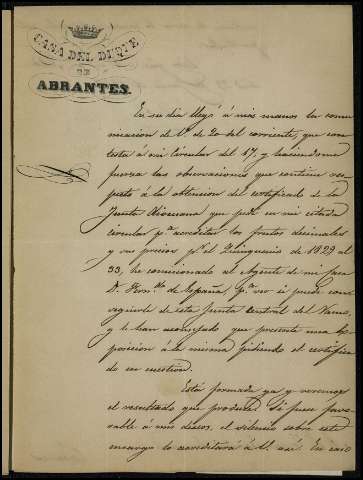 CASA DEL DUQUE
DE
ABRANTES.
En su dia llegó á mis manos la comu
nicacion de V. de 20 del corriente, que con
testa á mi Circular del 17, y haciendome
fuerza las observaciones que contiene res
pecto á la obtencion del certificado de la
Junta Diocesana que pedí en mi citada
circular pª acreditar los frutos decimales
y sus precios pr el Quinquenio de 1829 al
33, he comisionado al Agente de mi Casa
D. de España, pª ver si puede con
seguirle de esta Junta Central del Ramo,
y le han aconsejado que presente una ex
posicion á la misma pidiendo el certifica
do en cuestion.
Está formada ya y veremos
el resultado que produce. Si fuese favo
rable á mis deseos, el silencio sobre este
encargo lo acreditará á V. así. En caso